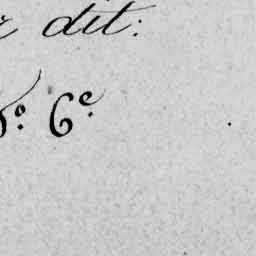 dit:
6e.